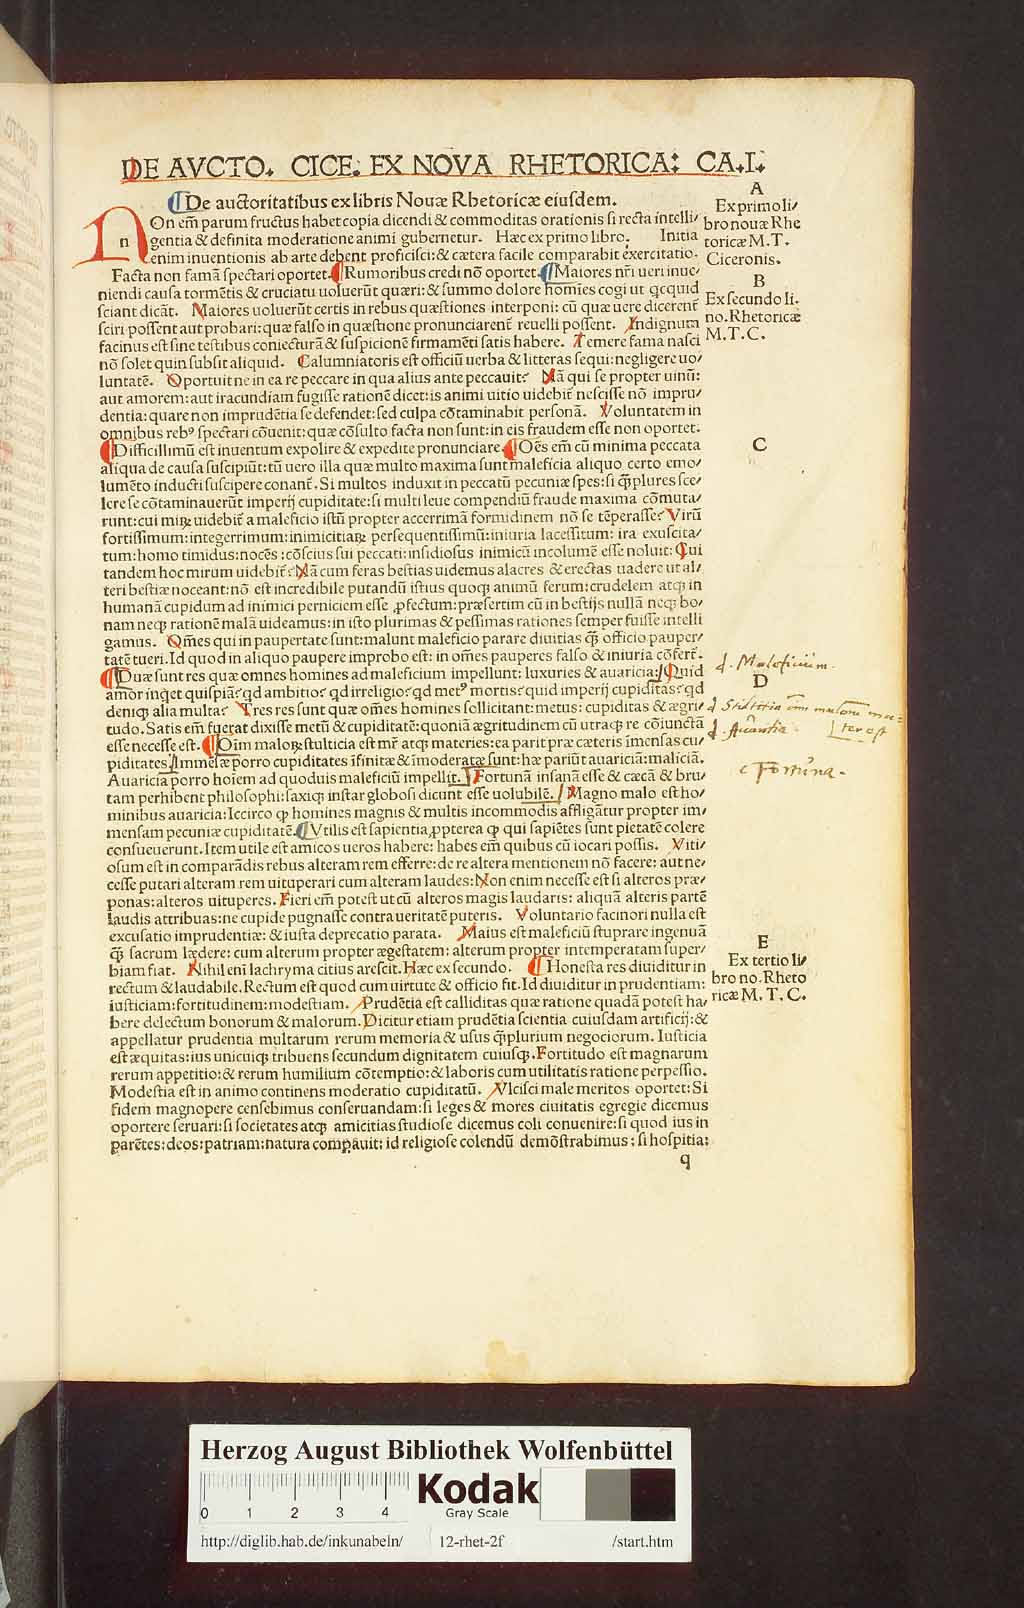 DE AVCTO. CICE. EX NOVA RHETORICA: CA.I.
De auctoritatibus ex libris Nouæ Rhetoricæ eiusdem.
NOn em̄ parum fructus habet copia dicendi & commoditas orationis si recta intelli/
gentia & definita moderatione animi gubernetur. Hæc ex primo libro. Initia
enim inuentionis ab arte debent proficisci: & cætera facile comparabit exercitatio.
Facta non famā spectari oportet. Rumoribus credi nō oportet. Maiores nr̄i ueri inue/
niendi causa tormētis & cruciatu uoluerūt quæri: & summo dolore homīes cogi ut qcquid
sciant dicāt. Maiores uoluerūt certis in rebus quæstiones interponi: cū quæ uere dicerent̄
sciri possent aut probari: quæ falso in quæstione pronunciarent̄ reuelli possent. Indignum
facinus est sine testibus coniecturā & suspicionē firmamēti satis habere. Temere fama nasci
nō solet quin subsit aliquid. Calumniatoris est officiū uerba & litteras sequi: negligere uo/
luntatē. Oportuit ne in ea re peccare in qua alius ante peccauit? Nā qui se propter uinū:
aut amorem: aut iracundiam fugisse rationē dicet: is animi uitio uidebit̄ nescisse nō impru/
dentia: quare non imprudētia se defendet: sed culpa cōtaminabit personā. Voluntatem in
omnibus rebꝰ spectari cōuenit: quæ cōsulto facta non sunt: in eis fraudem esse non oportet.
Difficillimū est inuentum expolire & expedite pronunciare. Oēs em̄ cū minima peccata
aliqua de causa suscipiūt: tū uero illa quæ multo maxima sunt maleficia aliquo certo emo/
lumēto inducti suscipere conant̄. Si multos induxit in peccatū pecuniæ spes: si qp̄ plures sce/
lere se cōtaminauerūt imperij cupiditate: si multi leue compendiū fraude maxima cōmuta/
runt: cui miꝝ uidebit̄ a maleficio istū propter accerrimā formidinem nō se tēperasse? Virū
fortissimum: integerrimum: inimicitiaꝝ persequentissimū: iniuria lacessitum: ira exuscita/
tum: homo timidus: nocēs: cōscius sui peccati: insidiosus inimicū incolumē esse noluit: Cui
tandem hoc mirum uidebit̄? Nā cum feras bestias uidemus alacres & erectas uadere ut al/
teri bestiæ noceant: nō est incredibile putandū istius quoqꝫ animū ferum: crudelem atqꝫ in
humanā cupidum ad inimici perniciem esse ꝓfectum: præsertim cū in bestijs nullā neqꝫ bo/
nam neqꝫ rationē malā uideamus: in isto plurimas & pessimas rationes semper fuisse intelli
gamus. Om̄es qui in paupertate sunt: malunt maleficio parare diuitias qꝫ̄ officio pauper/
tatē tueri. Id quod in aliquo paupere improbo est: in om̄es pauperes falso & iniuria cōfert̄.
Duæ sunt res quæ omnes homines ad maleficium impellunt: luxuries & auaricia: Quid
amor inqet quispiā? qd ambitio? qd irreligio? qd metꝰ mortis? quid imperij cupiditas? qd
deniqꝫ alia multa? Tres res sunt quæ om̄es homines sollicitant: metus: cupiditas & ægri/
tudo. Satis em̄ fuerat dixisse metū & cupiditatē: quoniā ægritudinem cū utraqꝫ re cōiunctā
esse necesse est. Oīm maloꝝ stulticia est mr̄ atqꝫ materies: ea parit præ cæteris īmensas cu/
piditates. Immensæ porro cupiditates īfinitæ & īmoderatæ sunt: hæ pariūt auariciā: maliciā.
Auaricia porro hoīem ad quoduis maleficiū impellit. Fortunā insanā esse & cæcā & bru/
tam perhibent philosophi: saxiqꝫ instar globosi dicunt esse uolubilē. Magno malo est ho/
minibus auaricia: Iccirco qp̄ homines magnis & multis incommodis affligātur propter im/
mensam pecuniæ cupiditatē. Vtilis est sapientia, ꝓpterea qp̄ qui sapiētes sunt pietatē colere
consueuerunt. Item utile est amicos ueros habere: habes em̄ quibus cū iocari possis. Viti/
osum est in comparādis rebus alteram rem efferre: de re altera mentionem nō facere: aut ne/
cesse putari alteram rem uituperari cum alteram laudes: Non enim necesse est si alteros præ/
ponas: alteros uituperes. Fieri em̄ potest ut cū alteros magis laudaris: aliquā alteris partē
laudis attribuas: ne cupide pugnasse contra ueritatē puteris. Voluntario facinori nulla est
excusatio imprudentiæ: & iusta deprecatio parata. Maius est maleficiū stuprare ingenuā
qꝫ̄ sacrum lædere: cum alterum propter ægestatem: alterum propter intemperatam super/
biam fiat. Nihil enī lachryma citius arescit. Hæc ex secundo. Honesta res diuiditur in
rectum & laudabile. Rectum est quod cum uirtute & officio fit. Id diuiditur in prudentiam:
iusticiam: fortitudinem: modestiam. Prudētia est calliditas quæ ratione quadā potest ha/
bere delectum bonorum & malorum. Dicitur etiam prudētia scientia cuiusdam artificij: &
appellatur prudentia multarum rerum memoria & usus qp̄plurium negociorum. Iusticia
est æquitas: ius unicuiqꝫ tribuens secundum dignitatem cuiusqꝫ. Fortitudo est magnarum
rerum appetitio: & rerum humilium cōtemptio: & laboris cum utilitatis ratione perpessio.
Modestia est in animo continens moderatio cupiditatū. Vlcisci male meritos oportet: Si
fidem magnopere censebimus conseruandam: si leges & mores ciuitatis egregie dicemus
oportere seruari: si societates atqꝫ amicitias studiose dicemus coli conuenire: si quod ius in
parētes: deos: patriam: natura compauit: id religiose colendū demōstrabimus: si hospitia:
q
A
Ex primo li/
bro nouæ Rhe
toricæ M.T.
Ciceronis.
B
Ex secundo li.
no. Rhetoricæ
M.T.C.
C
d. Maleficium.
D
d. Auaritia.
c Fortuna.
E
Ex tertio li/
bro no. Rheto
ricæ M.T.C.
Herzog August Bibliothek Wolfenbüttel
0 1 2 3 4
Kodak
Gray Scale
http://diglib.hab.de/inkunabeln/ 12-rhet-2f /start.htm